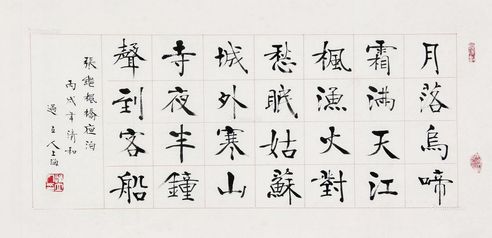 月落烏啼
霜滿天江
楓漁火對
愁眠姑蘇
城外寒山
寺夜半鐘
聲到客船
張継楓橋夜泊
丙戌年清和